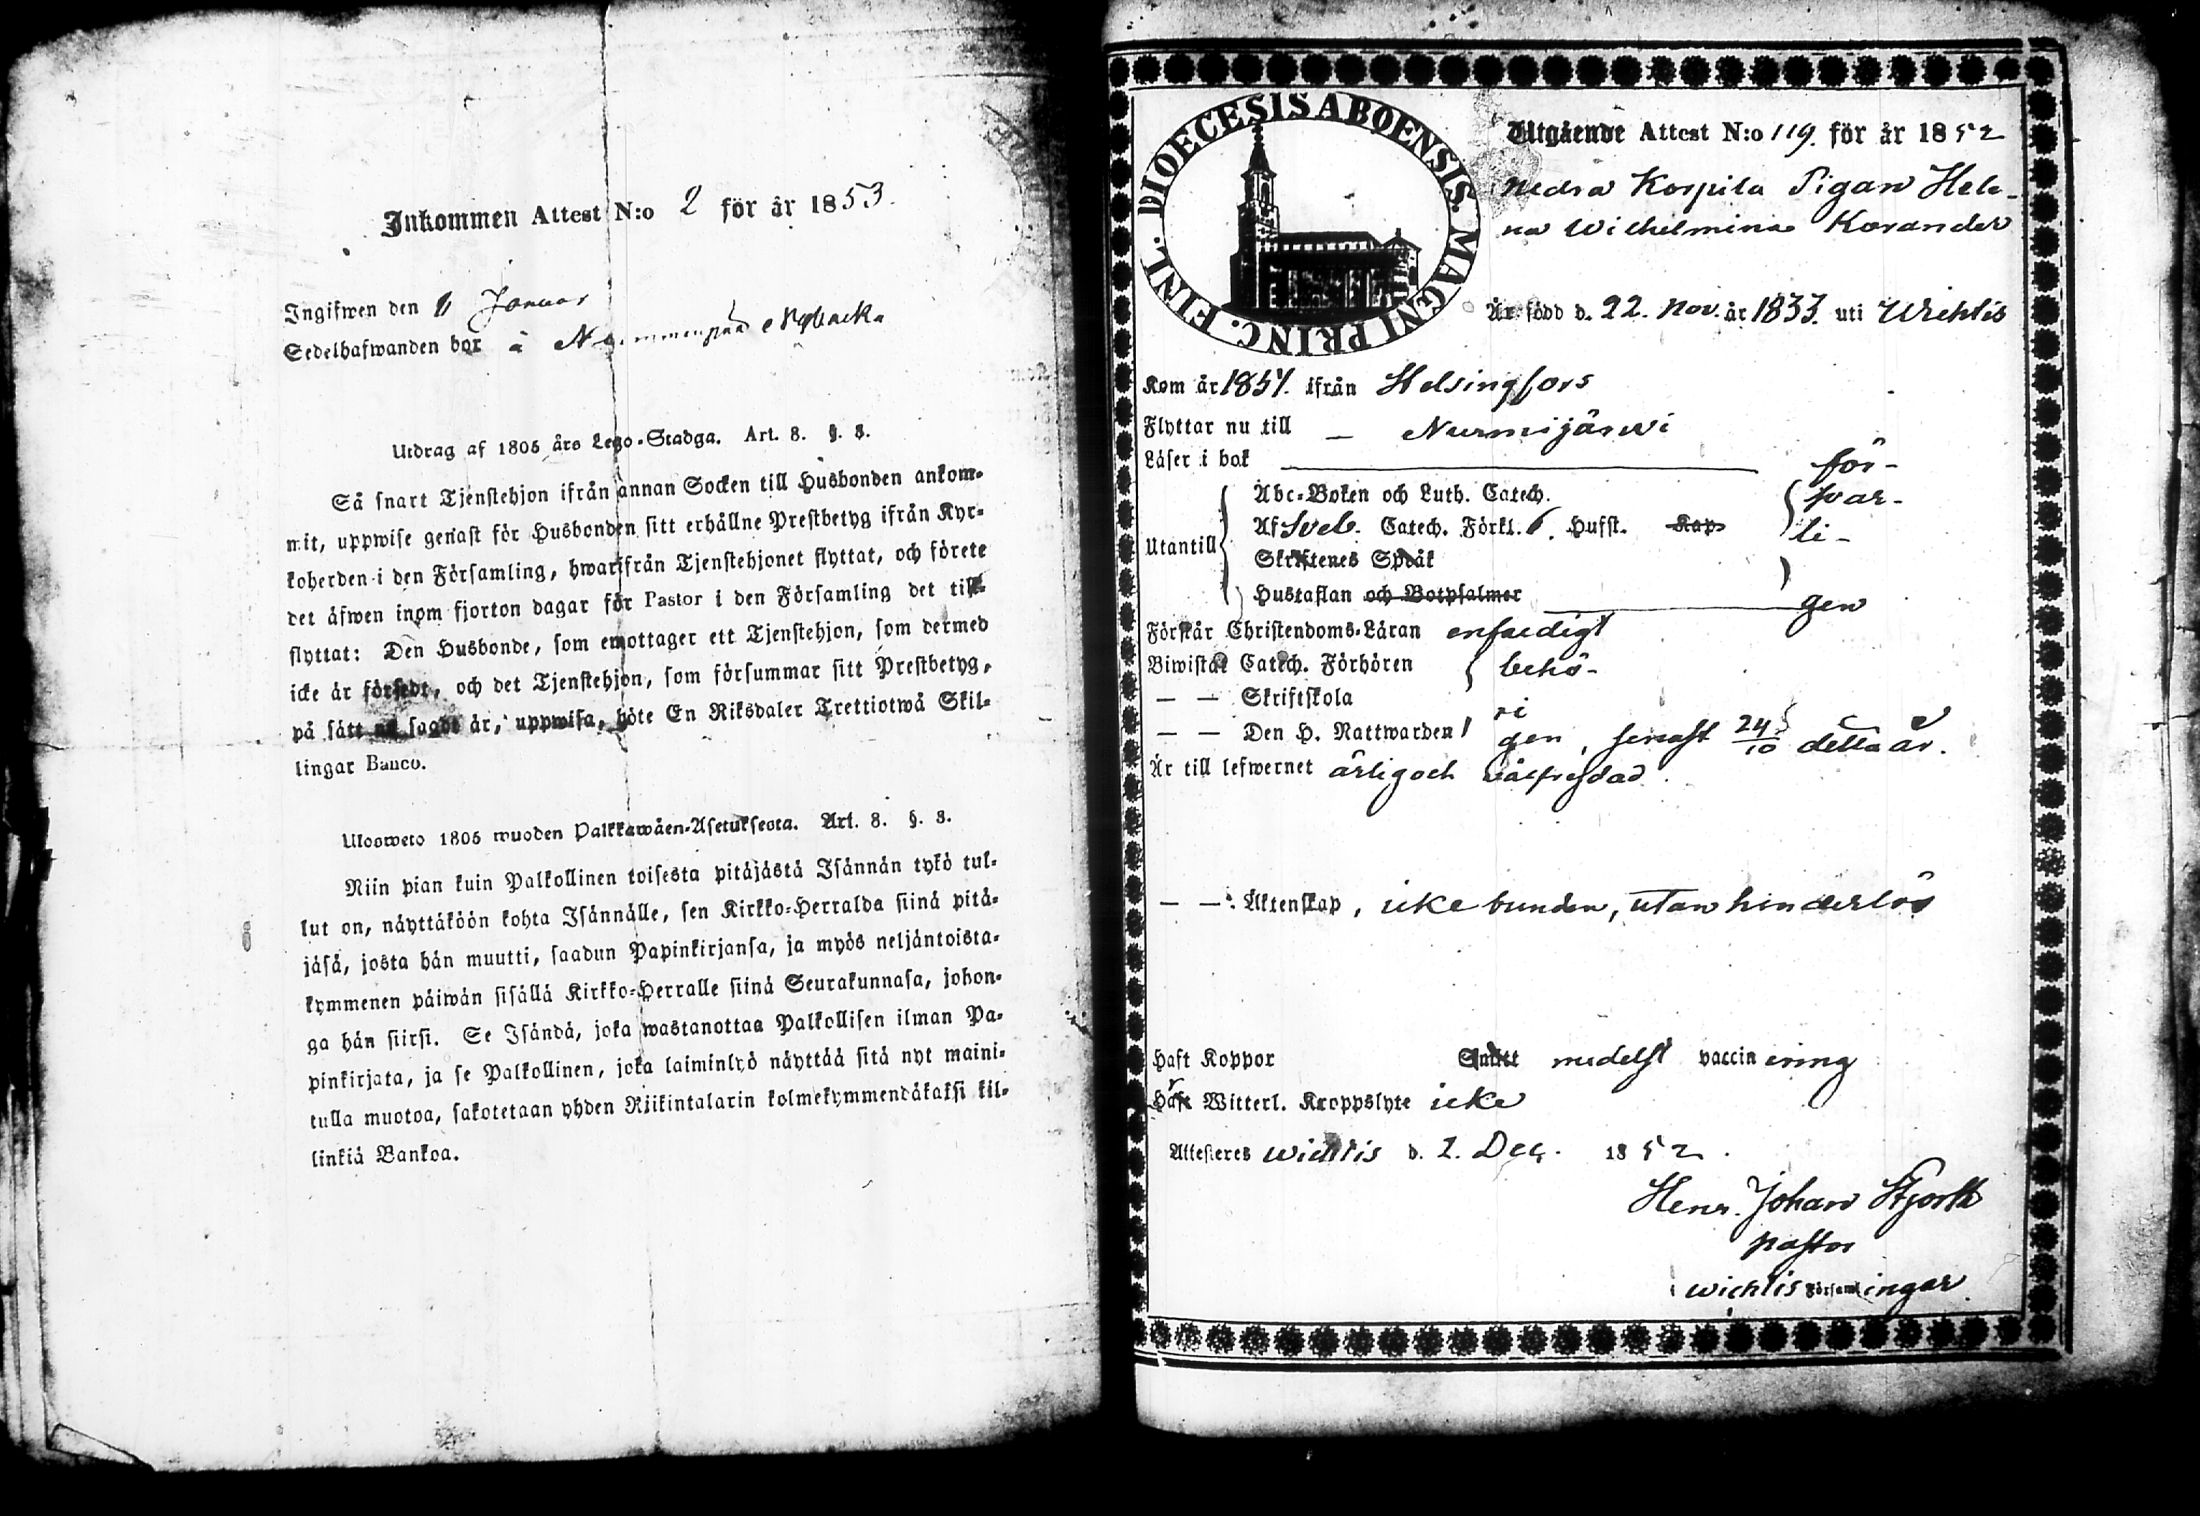 Inkommen Attest N:o 2 för år 1853.
Ingifwen den Januar
Sedelhafwanden bor å
Utdrag af 1805 års Lego-Stadga. Art. 8. §. 3.
Så snart Tjenstehjon ifrån annan Socken till Husbonden ankom-
mit, uppwise genast för Husbonden sitt erhållne Prestbetyg ifrån Kyr-
koherden i den Församling, hwarifrån Tjenstehjonet flyttat, och förete
det äfwen inom fjorton dagar för Pastor i den Församling det till-
flyttat: Den Husbonde, som emottager ett Tjenstehjon, som dermed
icke är försedt, och det Tjenstehjon, som försummar sitt Prestbetyg,
på sätt nu sagdt är, uppwisa, böte En Riksdaler Trettiotwå Skil-
lingar Banco.
Ulosweto 1805 wuoden Palkkawäen-Asetuksesta. Art. 8. §. 3.
Niin pian kuin Palkollinen toisesta pitäjästä Isännän tykö tul-
lut on, näyttäköön kohta Isännälle, sen Kirkko-Herralda siinä pitä-
jäsä, josta hän muutti, saadun Papinkirjansa, ja myös neljäntoista-
kymmenen päiwän sisällä Kirkko-Herralle siinä Seurakunnasa, johon-
ga hän siirsi. Se Isändä, joka wastanottaa Palkollisen ilman Pa-
pinkirjata, ja se Palkollinen, joka laiminlyö näyttää sitä nyt maini-
tulla muotoa, sakotetaan yhden Riikintalarin kolmekymmendäkaksi kil-
linkiä Bankoa.
DIOECESIS ABOENSIS. MAGNI PRINC. FINL.
Utgående Attest N:o 119. för år 1852
Nedra Korpila Pigan Hele-
na Wilhelmina Korander
Är född d. 22. Nov. år 1833. uti Wichtis
Kom år 1851. ifrån Helsingfors
Flyttar nu till — Nurmijärwi
Läser i bok för-
Abc-Boken och Luth. Catech. swar-
Utantill Af Sveb. Catech. Förkl. 6. Hufst. Kap. li-
Skriftenes Språk
Hustaflan och Botpsalmer gen
Förstår Christendoms-Läran enfaldigt
Biwistat Catech. Förhören behö-
— — Skriftskola ri
— — Den H. Nattwarden gen, senast 24/10 detta år.
Är till lefwernet ärlig och wälfrejdad.
— — Äktenskap, icke bunden, utan hinderlös
Haft Koppor medelst vaccinering
Witterl. Kroppslyte icke
Attesteres Wichtis d. 2. Dec. 1852.
Henr. Johan Hjorth
pastor
i Wichtis Församlingar.